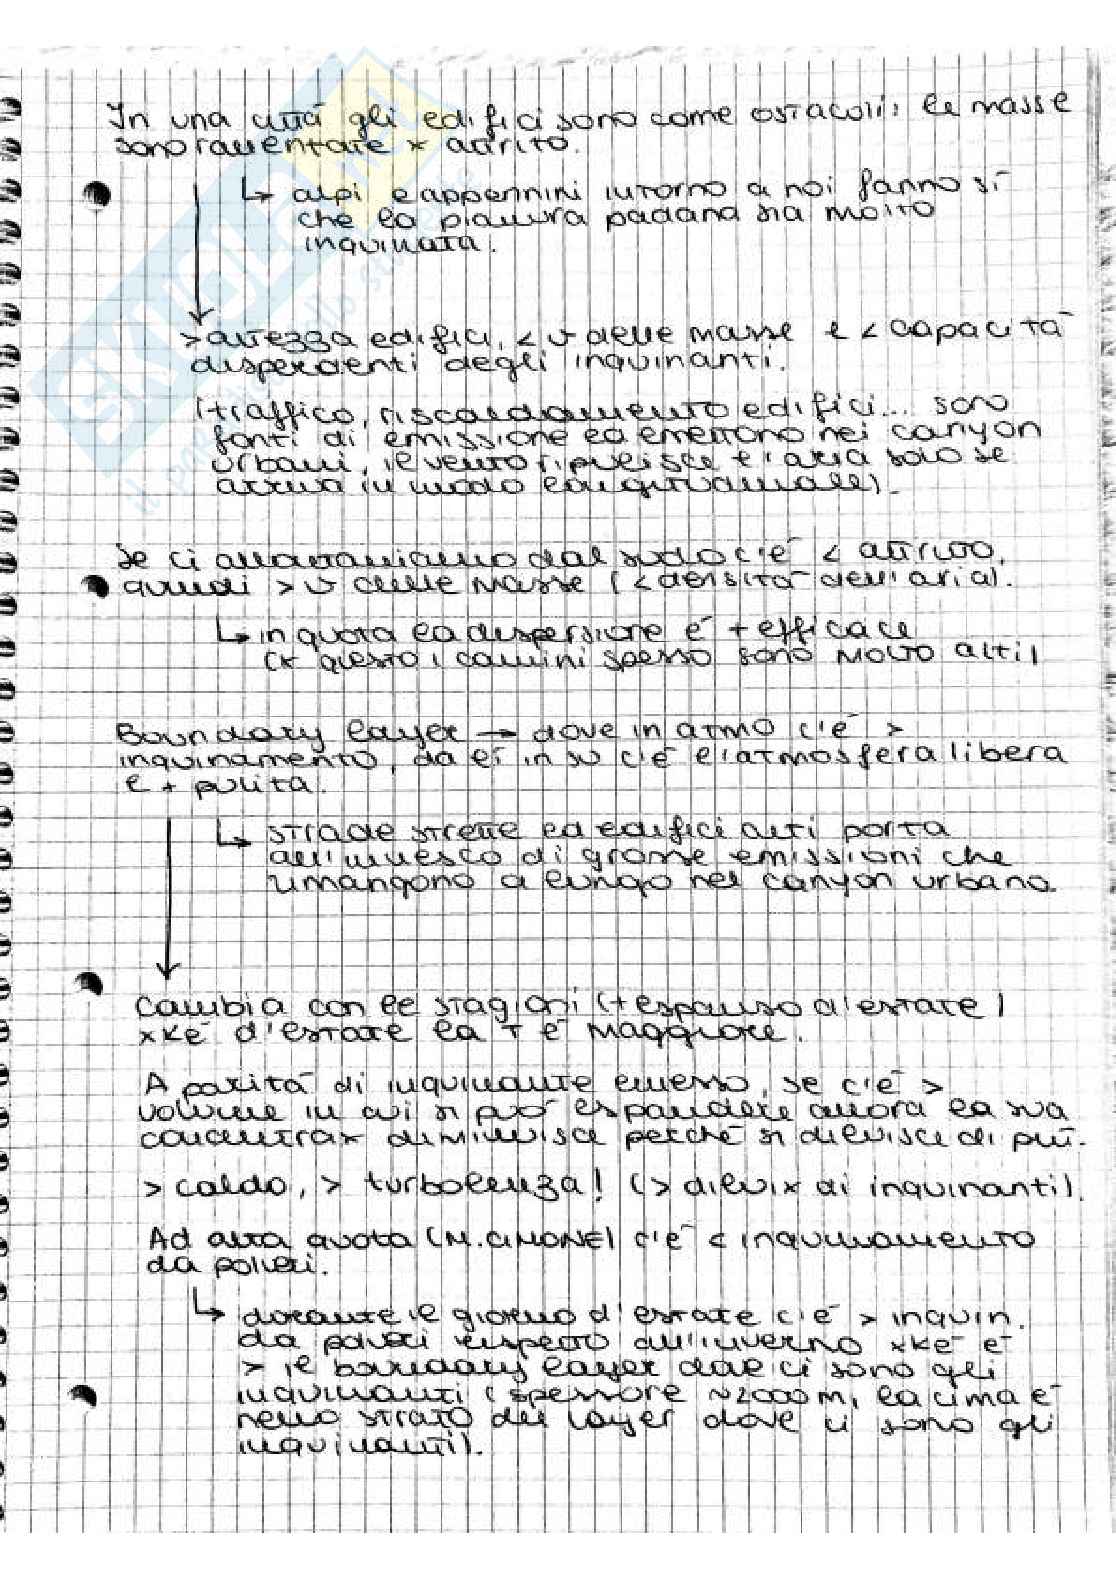 In una città gli edifici sono come ostacoli: le masse
sono rallentate x attrito.
↳ alpi e appennini intorno a noi fanno sì
che la pianura padana sia molto
inquinata.
> altezza edifici, < v delle masse e < capacità
disperdenti degli inquinanti.
(traffico, riscaldamento edifici... sono
fonti di emissione ed emettono nei canyon
urbani, il vento ripulisce l'aria solo se
arriva in modo longitudinale).
Se ci allontaniamo dal suolo c'è < attrito,
quindi > v delle masse (< densità dell'aria).
↳ in quota la dispersione è + efficace
(x questo i camini spesso sono molto alti)
Boundary layer → dove in atmo c'è >
inquinamento, da lì in su c'è l'atmosfera libera
e + pulita.
↳ strade strette ed edifici alti porta
all'innesco di grosse emissioni che
rimangono a lungo nel canyon urbano.
Cambia con le stagioni (+ espanso d'estate)
xké d'estate la T è maggiore.
A parità di inquinante emesso, se c'è >
volume in cui si può espandere allora la sua
concentrax diminuisce perché si diluisce di più.
> caldo, > turbolenza! (> diluix di inquinanti).
Ad alta quota (M. CIMONE) c'è < inquinamento
da polveri.
↳ durante il giorno d'estate c'è > inquin.
da polveri rispetto all'inverno xké è
> il boundary layer dove ci sono gli
inquinanti (spessore ~2000 m, la cima è
nello strato del layer dove ci sono gli
inquinanti).
SKUOLA.net
il paradiso dello studente